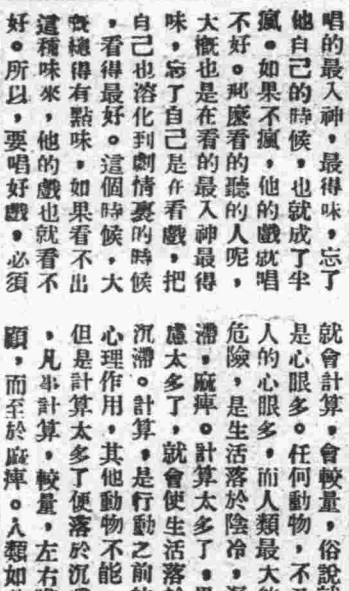 唱的最入神，最得味，忘了
他自己的時候，也就成了半
瘋。如果不瘋，他的戲就唱
不好。那麼看的聽的人呢，
大概也是在看的最入神最得
味，忘了自己是在看戲，把
自己也溶化到劇情裏的時候
，看得最好。這個時候，大
概總得有點味，如果看不出
這種味來，他的戲也就看不
好。所以，要唱好戲，必須
就會計算，會較量，俗說就
是心眼多。任何動物，不及
人的心眼多，而人類最大的
危險，是生活落於陰冷，沉
滯，麻痺。計算太多了，思
慮太多了，就會使生活落於
沉滯。計算，是行動之前的
心理作用，其他動物不能，
但是計算太多了便落於沉
，凡事計算，較量，左右
顧，而至於麻痺。人類如